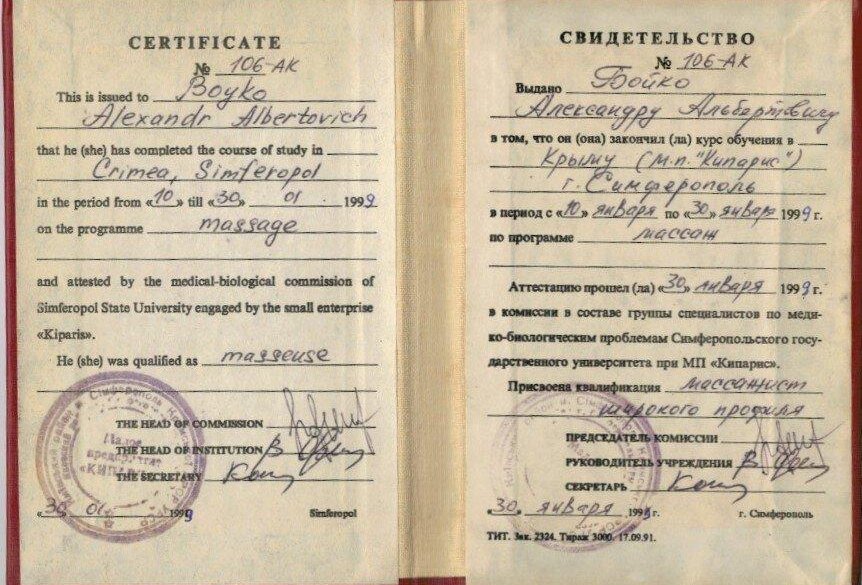 CERTIFICATE
№ 106-АК
This is issued to Boyko
Alexandr Albertovich
that he (she) has completed the course of study in
Crimea, Simferopol
in the period from «10» till «30» 01 1999
on the programme massage
and attested by the medical-biological commission of
Simferopol State University engaged by the small enterprise
«Kiparis».
He (she) was qualified as masseuse
THE HEAD OF COMMISSION
THE HEAD OF INSTITUTION
THE SECRETARY
«30» 01 1999 Simferopol
Малое
предприятие
«КИПАРИС»
СВИДЕТЕЛЬСТВО
№ 106-АК
Выдано Бойко
Александру Альбертовичу
в том, что он (она) закончил (ла) курс обучения в
Крыму (м.п. "Кипарис")
г. Симферополь
в период с «10» января по «30» января 1999 г.
по программе массаж
Аттестацию прошел (ла) «30» января 1999 г.
в комиссии в составе группы специалистов по меди-
ко-биологическим проблемам Симферопольского госу-
дарственного университета при МП «Кипарис».
Присвоена квалификация массажист
широкого профиля
ПРЕДСЕДАТЕЛЬ КОМИССИИ
РУКОВОДИТЕЛЬ УЧРЕЖДЕНИЯ
СЕКРЕТАРЬ
«30» января 1999 г. г. Симферополь
ТИТ. Зак. 2324. Тираж 3000. 17.09.91.